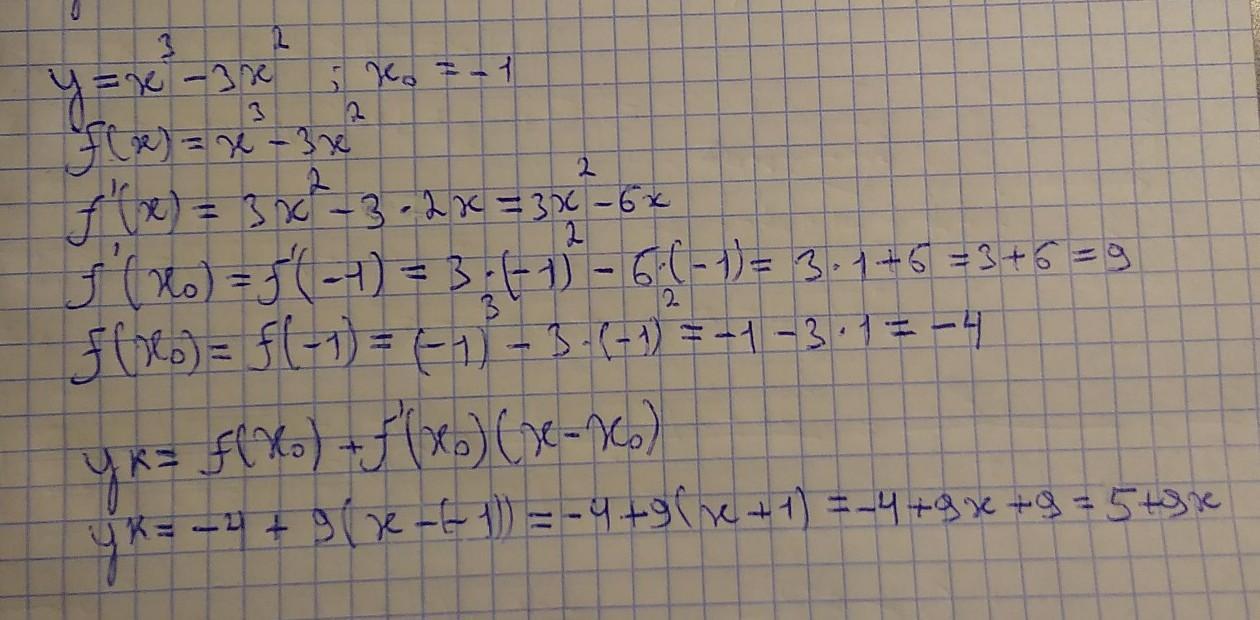 y = x³ - 3x² ; x₀ = -1
f(x) = x³ - 3x²
f'(x) = 3x² - 3 · 2x = 3x² - 6x
f'(x₀) = f'(-1) = 3 · (-1)² - 6 · (-1) = 3 · 1 + 6 = 3 + 6 = 9
f(x₀) = f(-1) = (-1)³ - 3 · (-1)² = -1 - 3 · 1 = -4
yк = f(x₀) + f'(x₀)(x - x₀)
yк = -4 + 9(x - (-1)) = -4 + 9(x + 1) = -4 + 9x + 9 = 5 + 9x